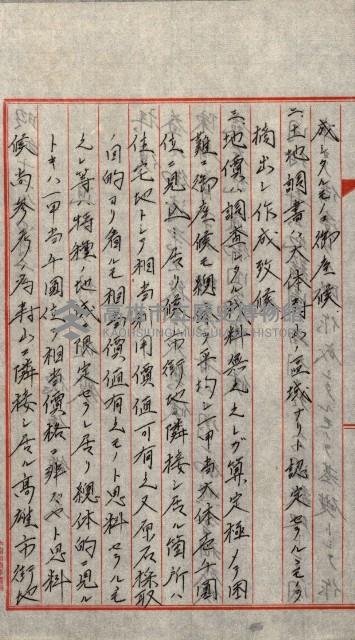 成シタルモノニ御座候
二、土地調書ハ大体壽山區域ナリト認定セラルヽモノヲ
摘出シ作成致候
三、地價ハ調査シタル資料無之之レガ算定極メテ困
難ニ御座候モ總
位ニ見込ミ居リ候市街地ニ隣接シ居ル箇所ハ
住宅地トシテ相當利用價値可有之又原石採取
ノ目的ヨリ見ルモ相當價値有之モノト思料セラルヽモ
之レ等ハ特種ノ地域ニ限定セラレ居リ總体的ニ見ル
トキハ一甲當千圓位ヲ相當價格ニ非ズヤト思料
候尚参考ノ為壽山ニ隣接シ居ル高雄市街地
高雄市立歷史博物館
KAOHSIUNG MUSEUM OF HISTORY